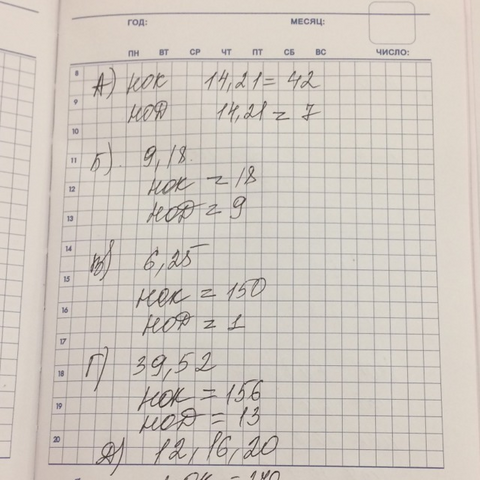 ГОД: МЕСЯЦ:
ПН ВТ СР ЧТ ПТ СБ ВС ЧИСЛО:
8
А) НОК 14,21 = 42
9
НОД 14,21 = 7
10
11
Б). 9,18.
12
НОК = 18
13
НОД = 9
14
В) 6,25
15
НОК = 150
16
НОД = 1
17
Г) 39,52
18
НОК = 156
19
НОД = 13
20
Д) 12, 16, 20